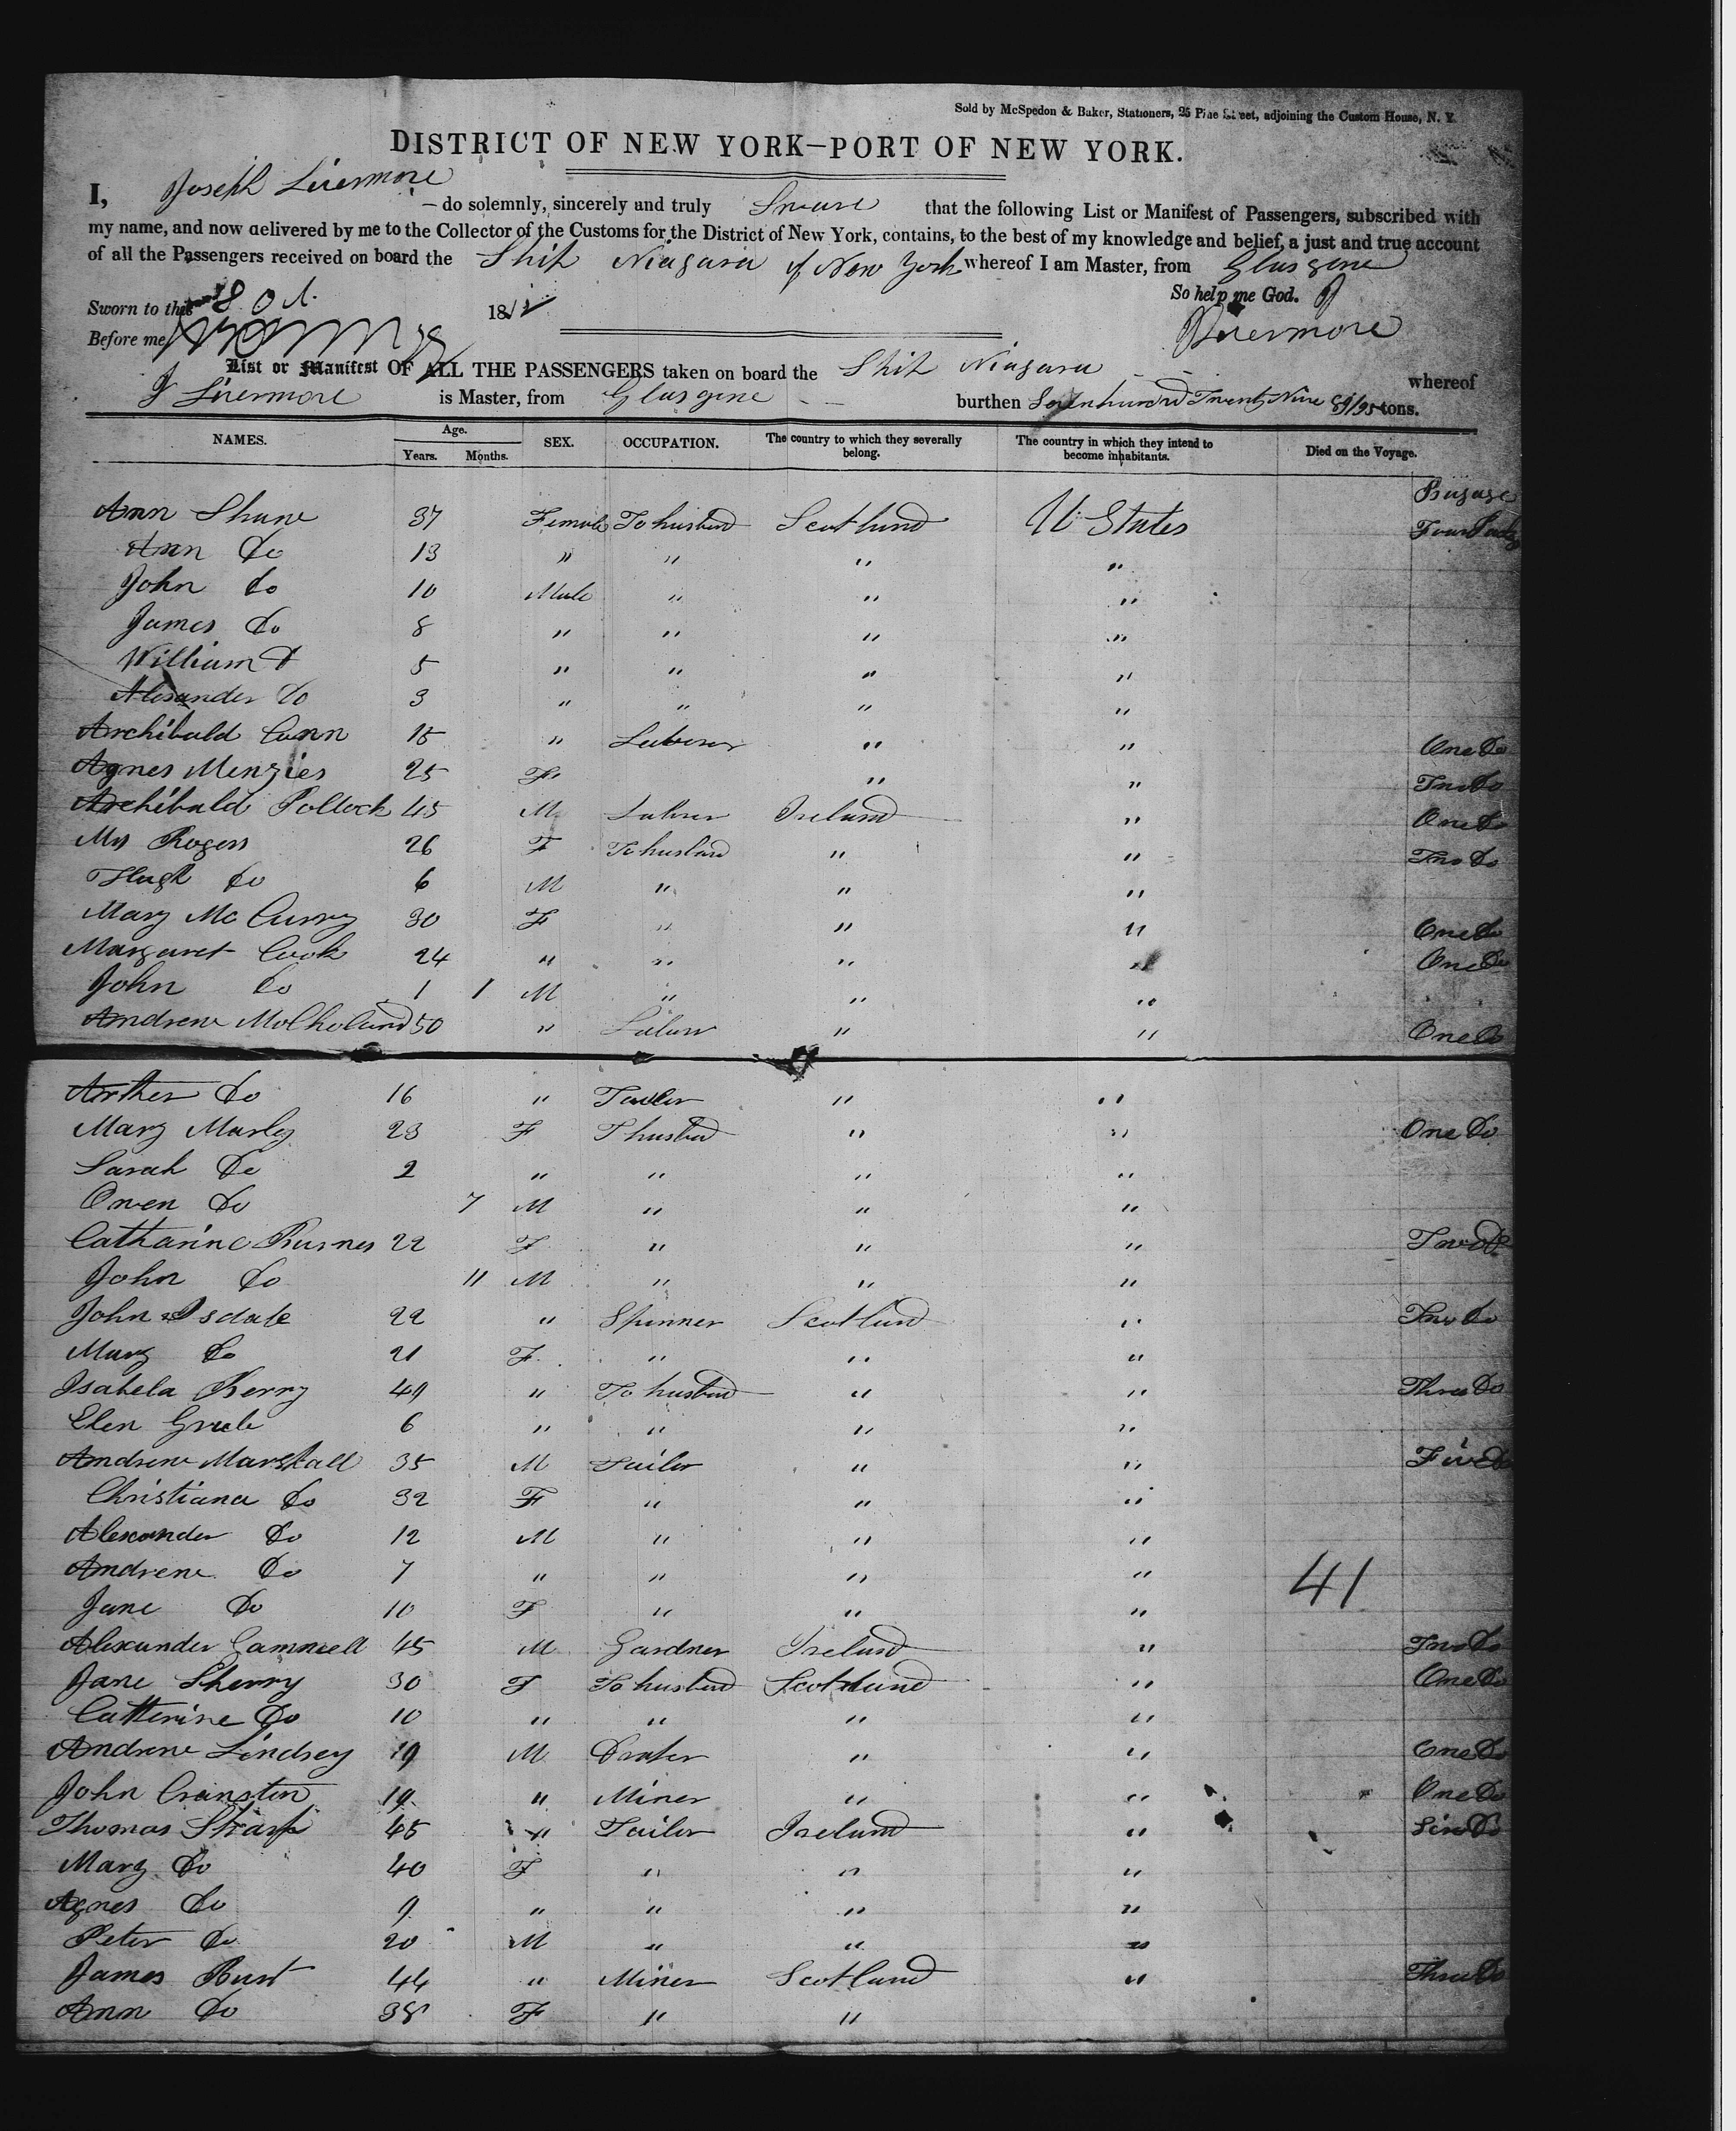 Sold by McSpedon & Baker, Stationers, 25 Pine Street, adjoining the Custom House, N. Y.
DISTRICT OF NEW YORK—PORT OF NEW YORK.
I, Joseph Livermore – do solemnly, sincerely and truly Swear that the following List or Manifest of Passengers, subscribed with
my name, and now delivered by me to the Collector of the Customs for the District of New York, contains, to the best of my knowledge and belief, a just and true account
of all the Passengers received on board the Ship Niagara of New York whereof I am Master, from Glasgow
So help me God.
Sworn to this 8 Oct. 18
J Livermore
Before me
List or Manifest OF ALL THE PASSENGERS taken on board the Ship Niagara whereof
J Livermore is Master, from Glasgow burthen Seven hundred Twenty Nine 89/95 tons.
NAMES. Age. Years. Months. SEX. OCCUPATION. The country to which they severally belong. The country in which they intend to become inhabitants. Died on the Voyage.
Bagage
Ann Shaw 37 Female To husband Scotland U States Four Packgs
Ann Do 13 " " " "
John Do 10 Male " " "
James Do 8 " " " "
William D 5 " " " "
Alexander Do 3 " " " "
Archibald Cann 15 " Laborer " " One Do
Agnes Menzies 25 F " " Two Do
Archibald Pollock 45 M Labrer Ireland " One Do
Mrs Rogers 26 F To husband " " Two Do
Hugh Do 6 M " " "
Mary Mc Curry 30 F " " " One Do
Margaret Cook 24 " " " " One Do
John Do 1 1 M " " "
Andrew Molholand 50 " Labrer " " One Do
Arther Do 16 " Tailer " "
Mary Marley 23 F T husband " " One Do
Sarah Do 2 " " " "
Owen Do 7 M " " "
Catharine Burnes 22 F " " " Two Do
John Do 11 M " " "
John Isdale 22 " Spinner Scotland " Two Do
Mary Do 21 F " " "
Isabela Berry 49 " To husband " " Three Do
Elen 6 " " " "
Andrew Marshall 35 M Tailor " " Five Do
Christiana Do 32 F " " "
Alexander Do 12 M " " "
Andrew Do 7 " " " "
Jane Do 10 F " " "
41
Alexander Gammell 45 M Gardner Ireland " Two Do
Jane Sherry 30 F To husband Scotland " One Do
Catherine Do 10 " " " "
Andrew Lindsey 19 M Draper " " One Do
John Cranston 19 " Miner " " One Do
Thomas Sharp 45 " Tailor Ireland " Six Do
Mary Do 40 F " " "
Agnes Do 9 " " " "
Peter Do 20 M " " "
James Burt 44 " Miner Scotland " Three Do
Ann Do 38 F " "